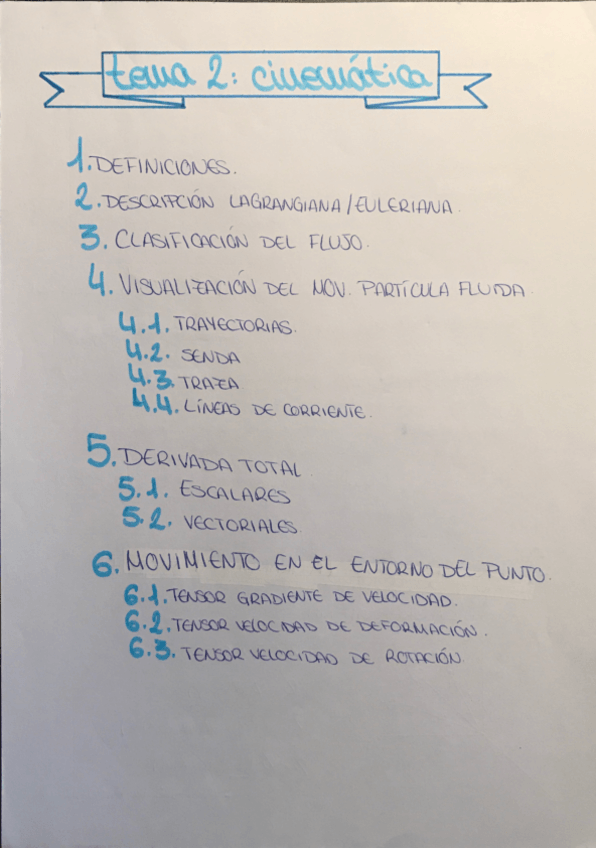 tema 2: cinemática
1. DEFINICIONES.
2. DESCRIPCIÓN LAGRANGIANA/EULERIANA.
3. CLASIFICACIÓN DEL FLUJO.
4. VISUALIZACIÓN DEL MOV. PARTÍCULA FLUIDA.
4.1. TRAYECTORIAS.
4.2. SENDA
4.3. TRAZA
4.4. LÍNEAS DE CORRIENTE.
5. DERIVADA TOTAL
5.1. ESCALARES
5.2. VECTORIALES.
6. MOVIMIENTO EN EL ENTORNO DEL PUNTO.
6.1. TENSOR GRADIENTE DE VELOCIDAD.
6.2. TENSOR VELOCIDAD DE DEFORMACIÓN.
6.3. TENSOR VELOCIDAD DE ROTACIÓN.